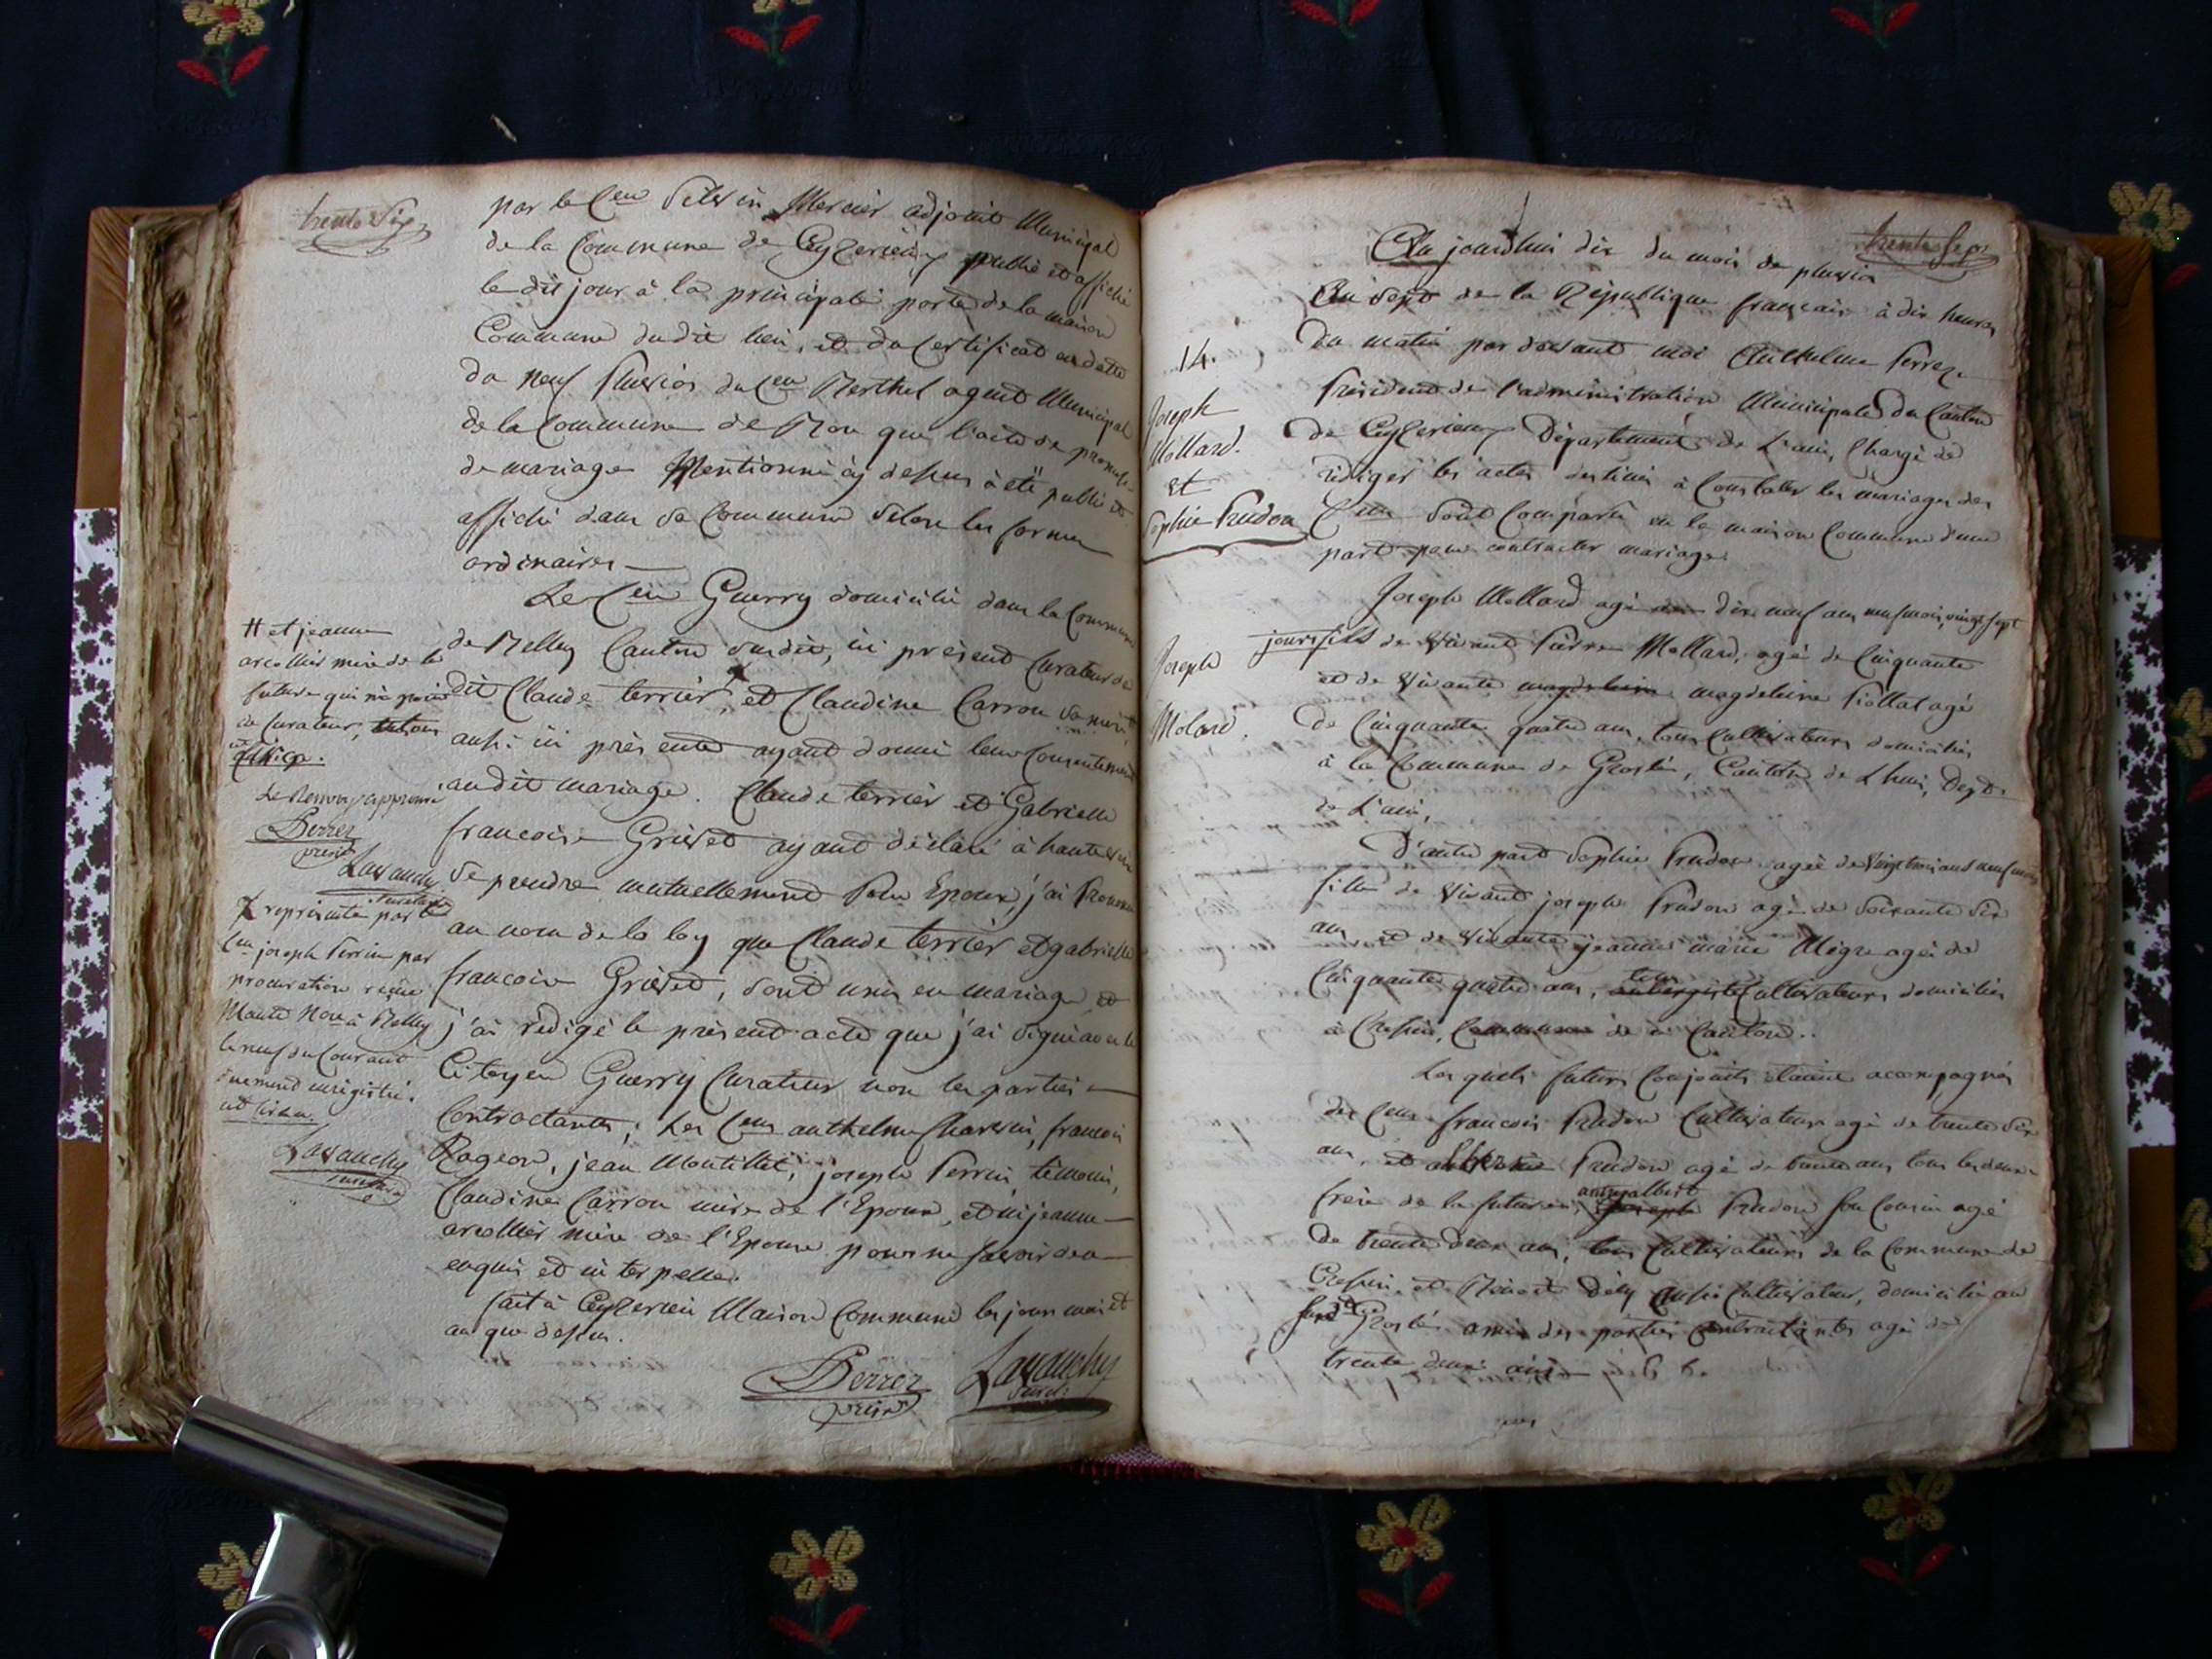 trente Six
par le Cen Silvin Mercier adjoint Municipal
de la Commune de Ceyzerieu publié et affiché
le dit jour à la principale porte de la maison
Commune du dit lieu, et du Certificat en datte
du neuf Pluviôs du Cen Berthet agent Municipal
de la Commune de Bon que l'acte de promesse
de mariage Mentionné cy dessus à été publié et
affiché dans sa Commune selon les formes
ordinaires
Le Cen Guerry domicilié dans la Commune
de Belley Canton dudit, ici présent Curateur du
dit Claude terrier, et Claudine Carron sa mère
aussi ici présente ayant donné leur Consentement
au dit mariage. Claude terrier et Gabrielle
francoise Grivet ayant déclaré à haute voix
se prendre mutuellement pour Epoux, j'ai Prononcé
au nom de la loy que Claude terrier et gabrielle
francoise Grivet, sont unis en mariage, et
j'ai rédigé le présent acte que j'ai signé avec le
Citoyen Guerry Curateur non les parties
Contractantes; Les Cens anthelme Charvin, francois
Rageon, jean Montillet, joseph Perrin témoins,
Claudine Carron mère de l'Epoux, et ni jeanne
arcollier mère de l'Epouse pour ne savoir de ce
enquis et interpellés.
fait à Ceyzerieu Maison Commune les jour mois et
an que dessus.
Perrez
présid
Lavauchy
Secret
# et jeanne
arcollier mère de la
future qui n'a point
de Curateur,
Le Renvoy approuvé
Perrez
présid
Lavauchy
Secretaire
X représenté par le
Cen joseph Perrin par
procuration reçue
Monte Nore à Belley
le neuf du Courant
duement enrigistré.
Lavauchy
Secretaire
trente Sept
Au jourd'hui dix du mois de pluviôs
An sept de la République française à dix heures
du matin par devant moi Anthelme Perrez
Président de l'administration Municipale du Canton
de Ceyzerieux Département de L'ain, Chargé de
rédiger les actes destinés à Constater les mariages des
Cens sont Comparu en la maison Commune d'une
part pour contracter mariage
14.
Joseph
Mollard.
et
Sophie Prudon
Joseph Mollard agé dix neuf ans neuf mois, vingt sept
jours fils de vivant Pierre Mollard, agé de Cinquante
et de vivante magdeleine magdeleine Piollat agé
de Cinquante quatre ans, tous Cultivateurs domiciliés
à la Commune de Groslée, Canton de Lhui, Dept.
de L'ain,
Joseph
Molard.
D'autre part Sophie Prudon agée de vingt trois ans neuf mois
fille de vivant joseph Prudon agé de Soixante six
ans et de vivante jeanne marie Mégre agée de
Cinquante quatre ans, aubergiste tous Cultivateurs domiciliés
à Cressieu, Commune de ce Canton.
Les quels futurs Conjoints étoient accompagnés
des Cens francois Prudon Cultivateur agé de trente six
ans, et Prudon agé de trente ans tous les deux
frère de la future, joseph Prudon son Cousin agé
De trente deux ans, tous Cultivateurs de la Commune de
Cressieu et Benoit Dély aussi Cultivateur, domicilié au
Susdit Groslée amis des parties Contractantes agé de
trente deux ans